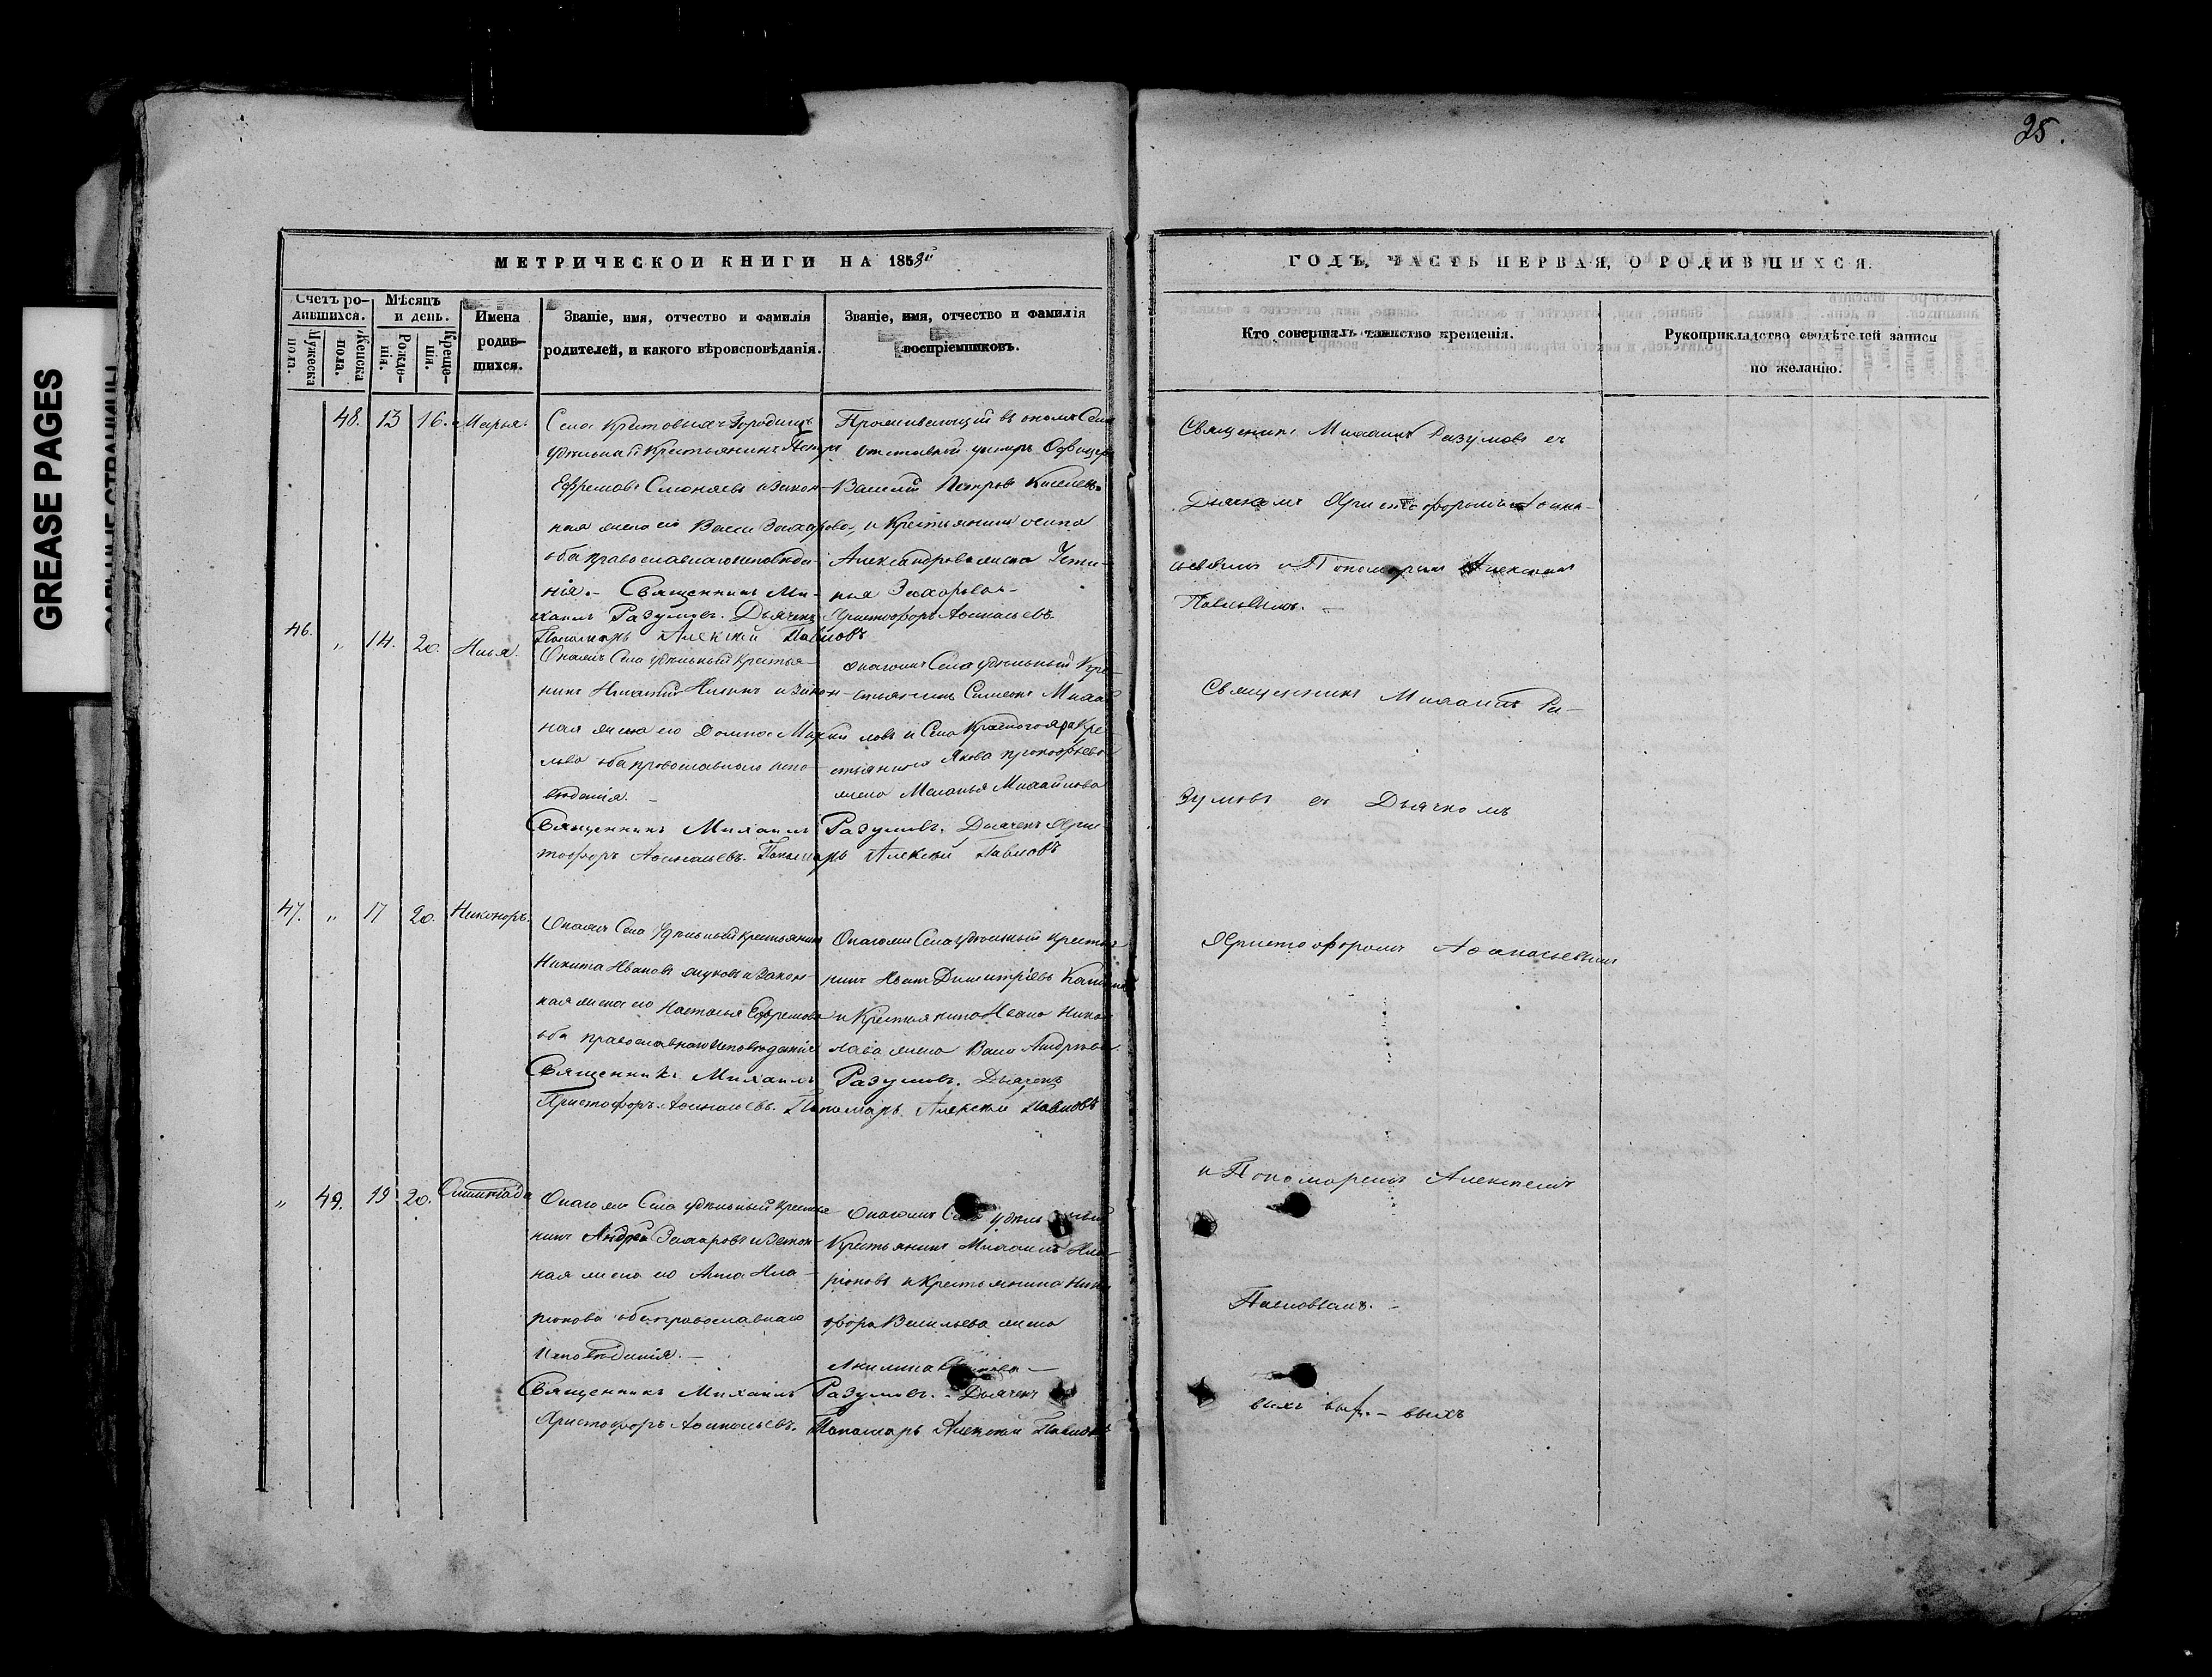 GREASE PAGES
25.
МЕТРИЧЕСКОЙ КНИГИ НА 1858й
ГОДЪ, ЧАСТЬ ПЕРВАЯ, О РОДИВШИХСЯ.
Счетъ ро-
дившихся.
Мужеска
пола.
Женска
пола.
Мѣсяцъ
и день.
Рожде-
нія.
Креще-
нія.
Имена
родив-
шихся.
Званіе, имя, отчество и фамилія
родителей, и какого вѣроисповѣданія.
Званіе, имя, отчество и фамилія
воспріемниковъ.
Кто совершалъ таинство крещенія.
Рукоприкладство свидѣтелей записи
по желанію.
48. 13 16. Марья.
Села Крестовыхъ Городищъ
удѣльный Крестьянинъ Петръ
Ефремовъ и Закон-
ная жена его Васа Захарова,
оба православнаго исповѣда-
нія. – Священникъ Ми-
хаилъ Разумовъ. Дьячекъ
Пономарь Алексѣй Павловъ
Проживающій въ ономъ Селѣ
отставной унтеръ Офицеръ
Василій Петровъ
и Крестьянина Осипа
Александрова жена Усти-
нья Захарова –
Христофоръ Аѳанасьевъ.
Священникъ Михаилъ Разумовъ съ
Дьячкомъ Христофоромъ Аѳана-
сьевымъ и Пономаремъ Алексѣемъ
Павловымъ. –
46. " 14. 20. Илья.
Онаго Села удѣльный Крестья-
нинъ и Закон-
ная жена его Домна Михай
лова оба православнаго испо-
вѣданія. –
Священникъ Михаилъ Разумовъ. Дьячекъ Хрис-
тофоръ Аѳанасьевъ. Пономарь Алексѣй Павловъ
онагожъ Села удѣльный Кре-
стьянинъ Симеонъ Михай
ловъ и Села Краснаго яра Кре-
стьянина Якова прокофьева
жена Меланья Михайлова
Священникъ Михаилъ Ра-
зумовъ съ Дьячкомъ
47. " 17 20. Никоноръ.
Онаго Села Удѣльный Крестьянинъ
Никита Ивановъ Жуковъ и Закон-
ная жена его Настасья Ефремова
оба православнаго исповѣданія
Священникъ Михаилъ Разумовъ. Дьячекъ
Христофоръ Аѳанасьевъ. Пономарь Алексѣй Павловъ
Онагожъ Села удѣльный Крестья
нинъ Иванъ Димитріевъ
и Крестьянина Ивана Нико
лаева жена Васа Андреева.
Христофоромъ Аѳанасьевымъ
" 49. 19 20. Олимпіада
Онагожъ Села удѣльный Крестья
нинъ Андрей Захаровъ и Закон-
ная жена его Анна Ила-
ріонова оба православнаго
Исповѣданія. –
Священникъ Михаилъ Разумовъ. – Дьячекъ
Христофоръ Аѳанасьевъ. Пономарь Алексѣй Павловъ
Онагожъ Села удѣльный
Крестьянинъ Михаилъ Ила-
ріоновъ и Крестьянина Ники
фора Васильева жена
Акилина
и Пономаремъ Алексѣемъ
Павловымъ. –